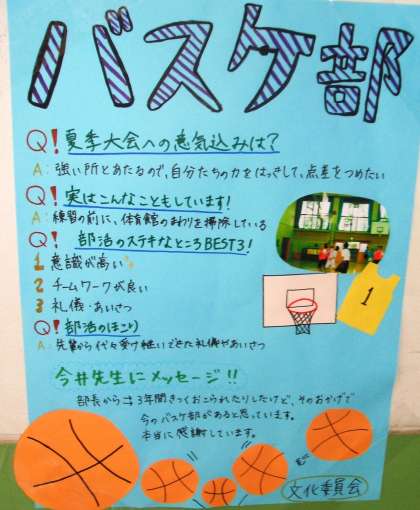 バスケ部
Q!夏季大会への意気込みは?
A:強い所とあたるので、自分たちの力をはっきして、点差をつめたい
Q!実はこんなこともしています!
A:練習の前に、体育館のまわりを掃除している
Q!部活のステキなところBEST3!
1意識が高い
2チームワークが良い
3礼儀・あいさつ
Q!部活のほこり
A:先輩から代々受け継いできた礼儀やあいさつ
1
今井先生にメッセージ!!
部長から→3年間きつくおこられたりしたけど、そのおかげで
今のバスケ部があると思っています。
本当に感謝しています。
文化委員会